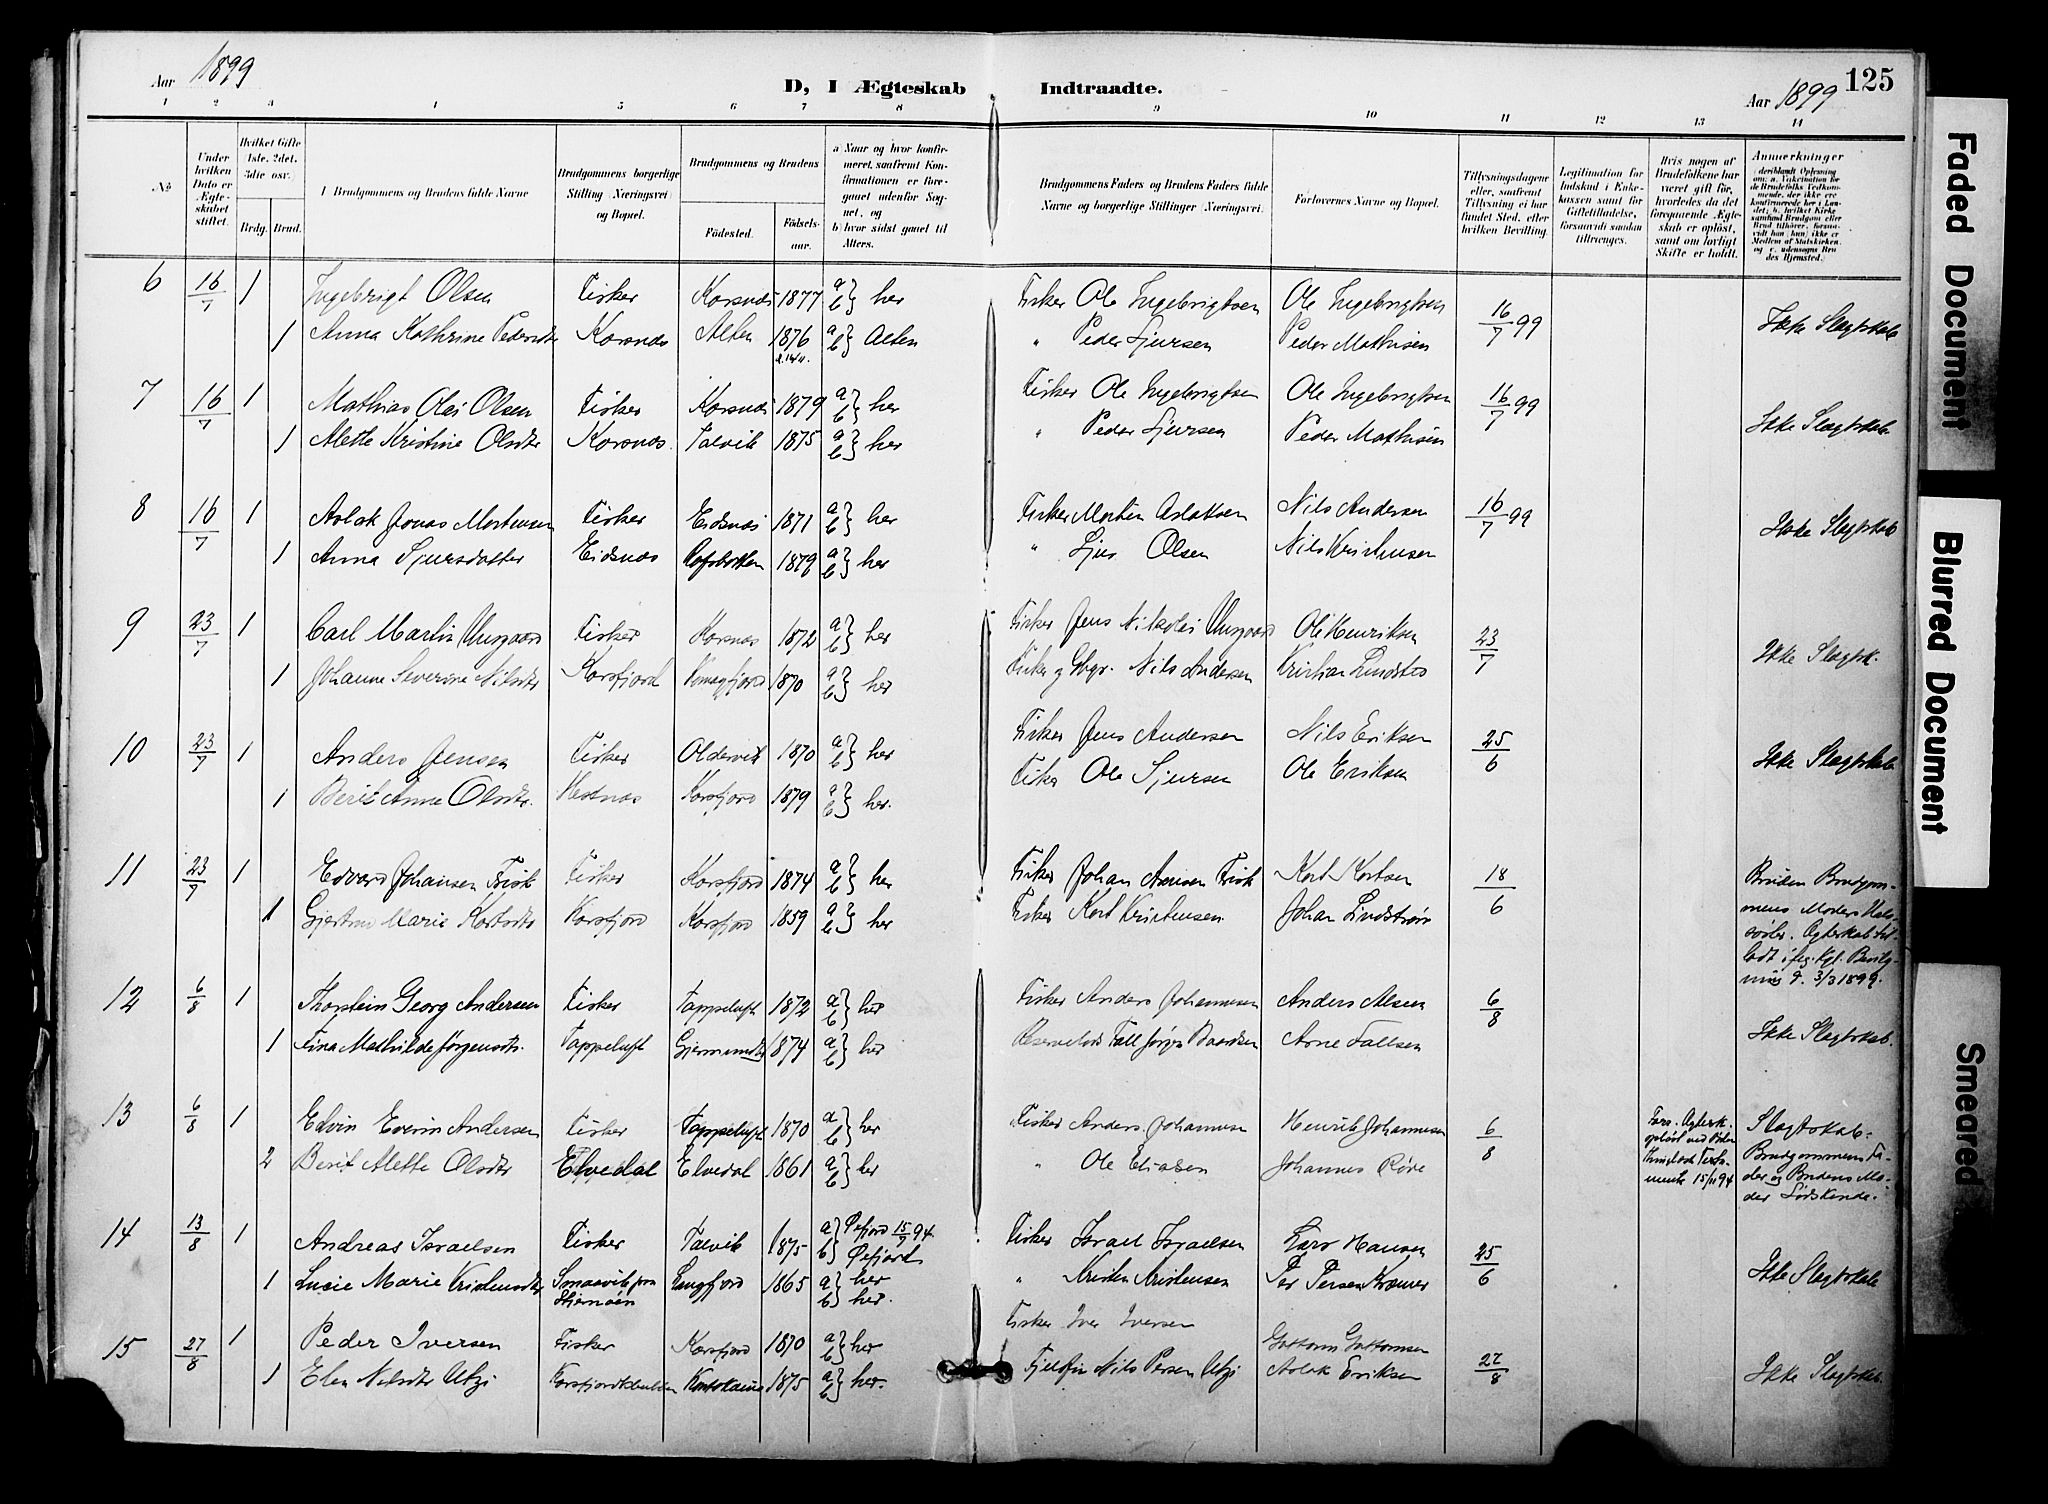 Aar 1899
D, I Ægteskab Indtraadte.
Aar 1899
125
1 2 3 4 5 6 7 8 9 10 11 12 13 14
№
Under hvilken Dato er Ægteskabet stiftet.
Hvilket Gifte 1ste, 2det, 3die osv.
Brdg. Brud.
Brudgommens og Brudens fulde Navne
Brudgommens borgerlige Stilling (Næringsvei) og Bopæl.
Brudgommens og Brudens
Födested.
Födselsaar.
a) Naar og hvor konfirmeret, saafremt Konfirmationen er foregaaet udenfor Sognet, og
b) hvor sidst gaaet til Alters.
Brudgommens Faders og Brudens Faders fulde Navne og borgerlige Stillinger (Næringsvei)
Forlovernes Navne og Bopæl.
Tillysningsdagene eller, saafremt Tillysning ei har fundet Sted, efter hvilken Bevilling.
Legitimation for Indskud i Enkekassen samt for Giftetilladelse, forsaavidt saadan tiltrænges.
Hvis nogen af Brudefolkene har været gift för, hvorledes da det foregaaende Ægteskab er oplöst, samt om lovligt Skifte er holdt.
Anmerkninger
6 16/7 1 Ingebrigt Olsen Fisker Korsnæs 1877 a b} her Fisker Ole Ingebrigtsen Ole Ingebrigtsen 16/7 99
1 Anna Kathrine Pedersdtr Korsnæs Alten 1876 a b} Alten " Peder Sjursen Peder Mathisen Ikke Slagtskab
7 16/7 1 Mathias Olai Olsen Fisker Korsnæs 1879 a b} her Fisker Ole Ingebrigtsen Ole Ingebrigtsen 16/7 99
1 Alette Kristine Olsdtr Korsnæs Talvik 1875 a b} her " Peder Sjursen Peder Mathisen Ikke Slagtskab
8 16/7 1 Aslak Jonas Mortensen Fisker Eidsnæs 1871 a b} her Fisker Morten Aslaksen Nils Andersen 16/7 99
1 Anna Sjursdatter Eidsnæs Rafsbotten 1879 a b} her " Sjur Olsen Nils Kristensen Ikke Slagtskab
9 23/7 1 Carl Martin Fisker Korsnæs 1872 a b} her Fisker Jens Nikolai Ole Henriksen 23/7
1 Johanne Severine Nilsdtr Korsfjord Komagfjord 1870 a b} her Fisker og Gbgr. Nils Andersen Kristian Ikke Slagtsk.
10 23/7 1 Anders Jensen Fisker Oldervik 1870 a b} her Fisker Jens Andersen Nils Eriksen 25/6
1 Berit Anne Olsdtr. Hestnæs Korsfjord 1879 a b} her. Fisker Ole Sjursen Ole Eriksen Ikke Slagtskab
11 23/7 1 Edvard Johansen Frisk Fisker Korsfjord 1874 a b} her Fisker Johan Frisk Kort Kortsen 18/6
1 Gjertrud Marie Kortsdtr Korsfjord Korsfjord 1859 a b} her Fisker Kort Kristensen Johan Lindstrøm
Bruden Brudgommens Moders Halvsøster. Ægteskab tilladt ifølg. Kgl. 3/3 1899.
12 6/8 1 Thorstein Georg Andersen Fisker Tappeluft 1872 a b} her Fisker Anders Johannesen Anders Olsen 6/8
1 Fina Mathilde Jørgensdtr. Tappeluft 1874 a b} her Jørgen Baardsen Arne Ikke Slagtskab.
13 6/8 1 Edvin Evenin Andersen Fisker Tappeluft 1870 a b} her Fisker Anders Johannesen Henrik Johannesen 6/8
2 Berit Alette Olsdtr Elvedal Elvedal 1861 a b} her " Ole Eliasen Johannes
15/11 94
Slagtskab: Brudgommens Fader og Brudens Moder Sødskende.
14 13/8 1 Andreas Israelsen Fisker Talvik 1875 a b} Øxfjord 15/7 94. Øxfjord Fisker Israel Israelsen Lars Hansen 25/6
1 Lucie Marie Kristensdtr Smaavik paa Stjernøen Langfjord 1865 a b} her her. " Kristen Kristensen Per Persen Kræmer Ikke Slagtskab
15 27/8 1 Peder Iversen Fisker Korsfjord 1870 a b} her Fisker Iver Iversen Guttorm Guttormsen
1 Elen Nilsdtr Utzi Kautokeino 1875 a b} her. Fjeldfin Nils Persen Utzi Aslak Eriksen 27/8 Ikke Slagtskab.
Faded Document
Blurred Document
Smeared